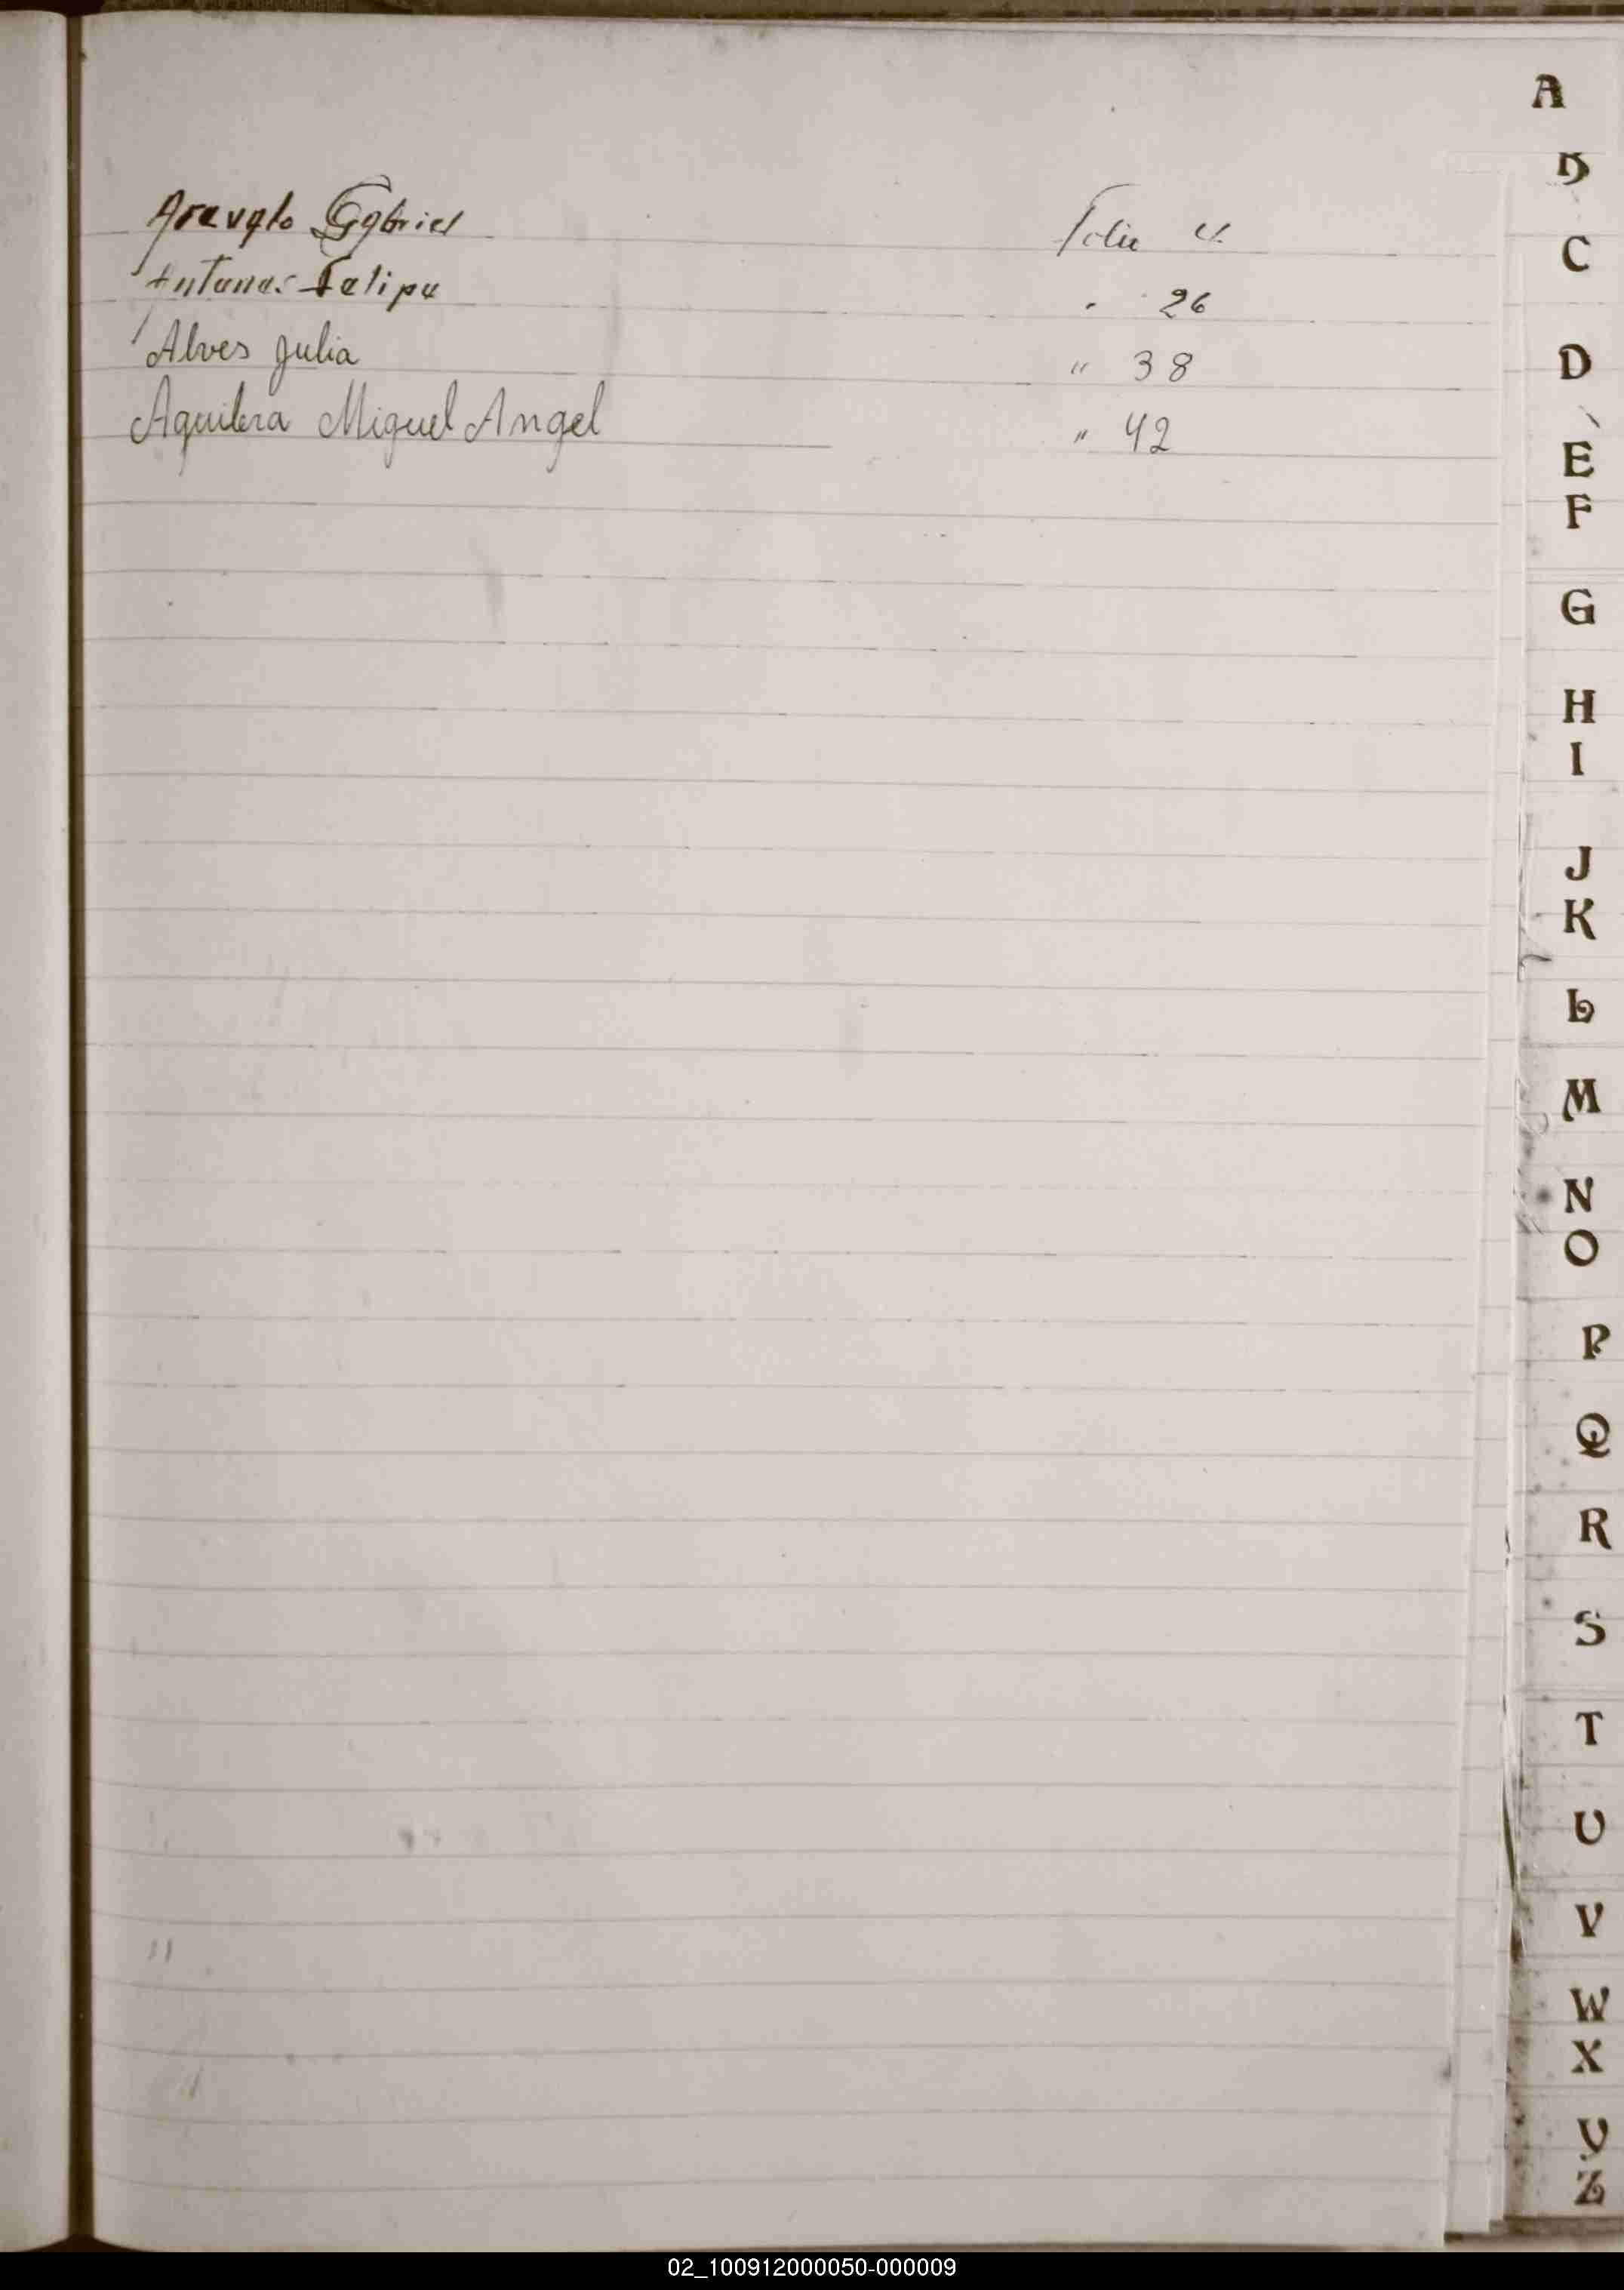 A
B
Arevalo Gabriel Folio 4
C
Antunes Felipe " 26
Alves Julia " 38
D
Aguilera Miguel Angel " 42
E
F
G
H
I
J
K
L
M
N
O
P
Q
R
S
T
U
V
W
X
Y
Z
02_100912000050-000009